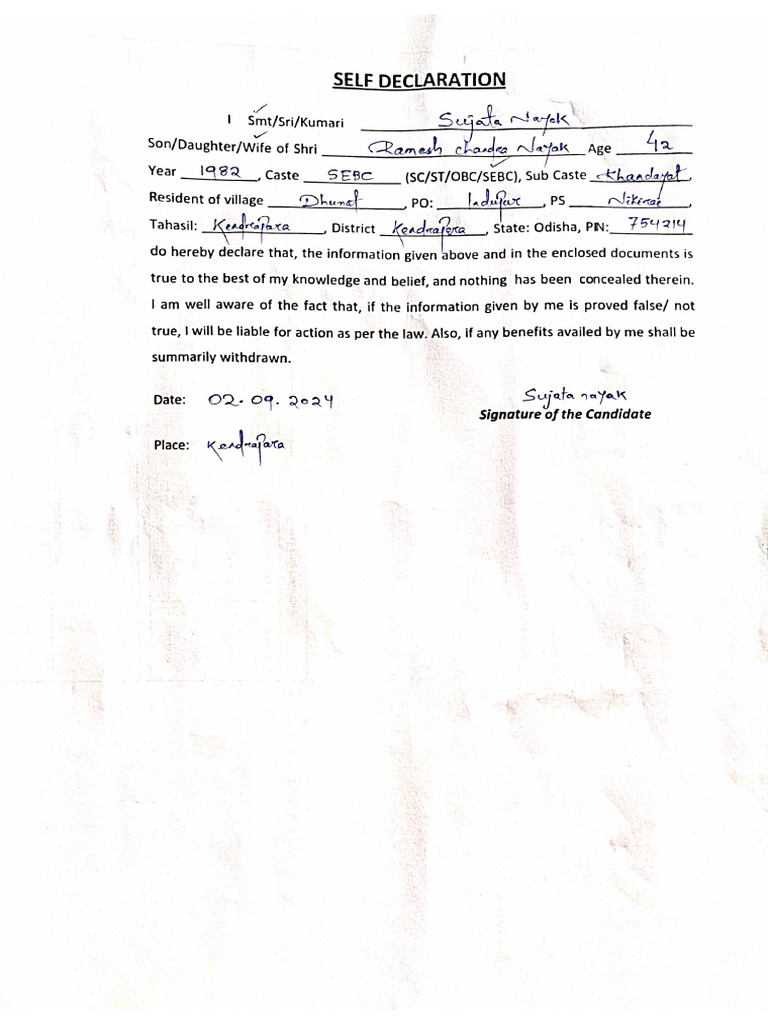 SELF DECLARATION
I Smt/Sri/Kumari Sujata Nayak
Son/Daughter/Wife of Shri Ramesh Chandra Nayak Age 42
Year 1982, Caste SEBC (SC/ST/OBC/SEBC), Sub Caste Khandayat,
Resident of village Dhunat, PO: Indupur, PS Nikirai,
Tahasil: Kendrapara, District Kendrapara, State: Odisha, PIN: 754214
do hereby declare that, the information given above and in the enclosed documents is
true to the best of my knowledge and belief, and nothing has been concealed therein.
I am well aware of the fact that, if the information given by me is proved false/ not
true, I will be liable for action as per the law. Also, if any benefits availed by me shall be
summarily withdrawn.
Date: 02.09.2024 Sujata nayak
Signature of the Candidate
Place: Kendrapara